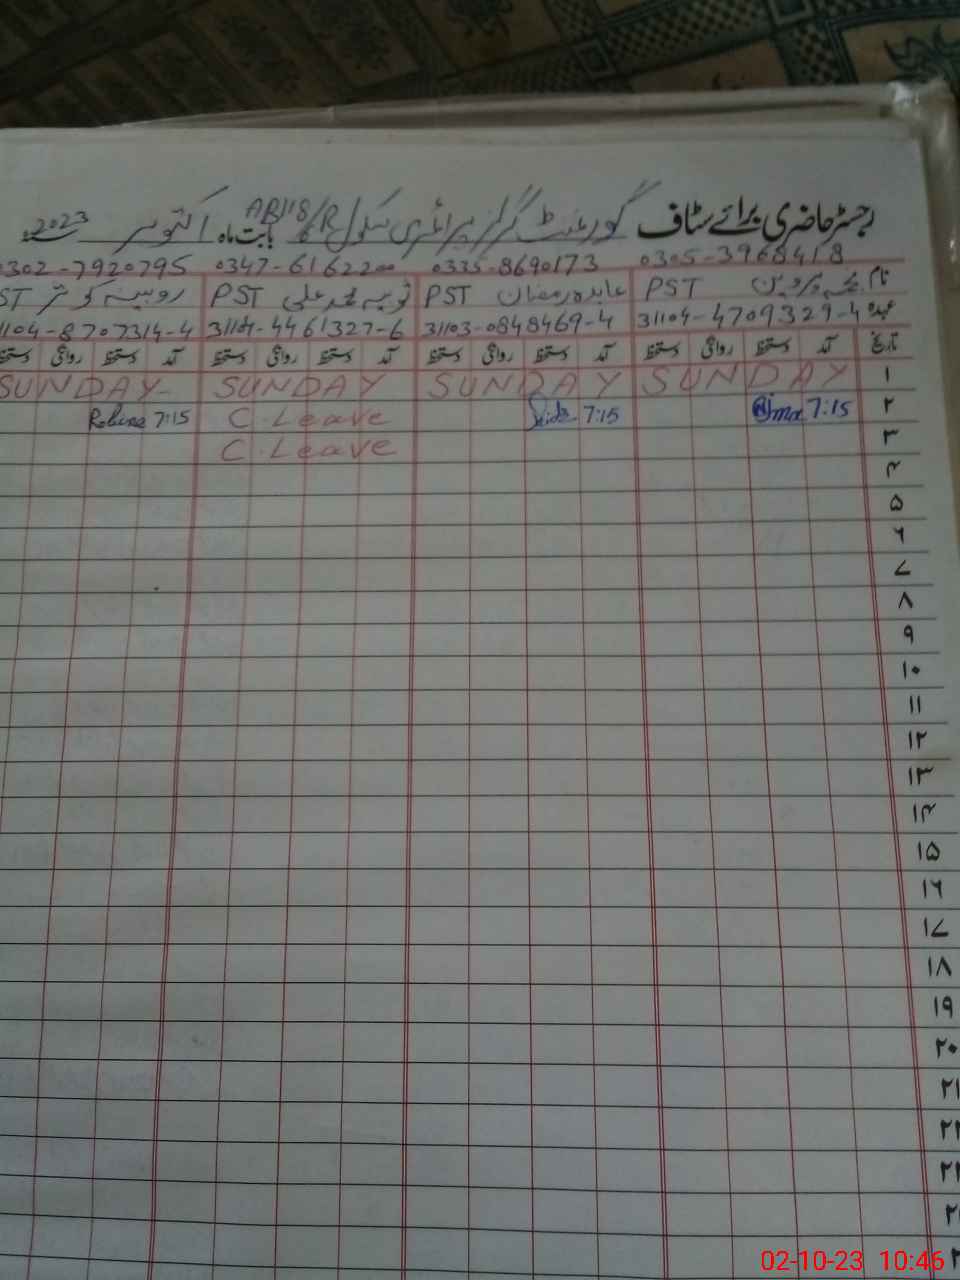 رجسٹر حاضری برائے سٹاف گورنمنٹ گرلز پرائمری سکول 118/6R بابت ماہ اکتوبر 2023ء
0305-3968418 0335-8690173 0347-6162200 0302-7920795
نام پروین PST عابدہ رمضان PST ثوبیہ محمد علی PST روبینہ کوثر ST
عہدہ 31104-4709329-4 31103-0848469-4 31104-4461327-6 1104-8707314-4
تاریخ آمد دستخط روانگی دستخط آمد دستخط روانگی دستخط آمد دستخط روانگی دستخط آمد دستخط روانگی دستخط
۱ SUNDAY SUNDAY SUNDAY SUNDAY
۲ 7:15 7:15 C.Leave Robina 7:15
۳ C.Leave
۴
۵
۶
۷
۸
۹
۱۰
۱۱
۱۲
۱۳
۱۴
۱۵
۱۶
۱۷
۱۸
۱۹
۲۰
۲۱
02-10-23 10:46